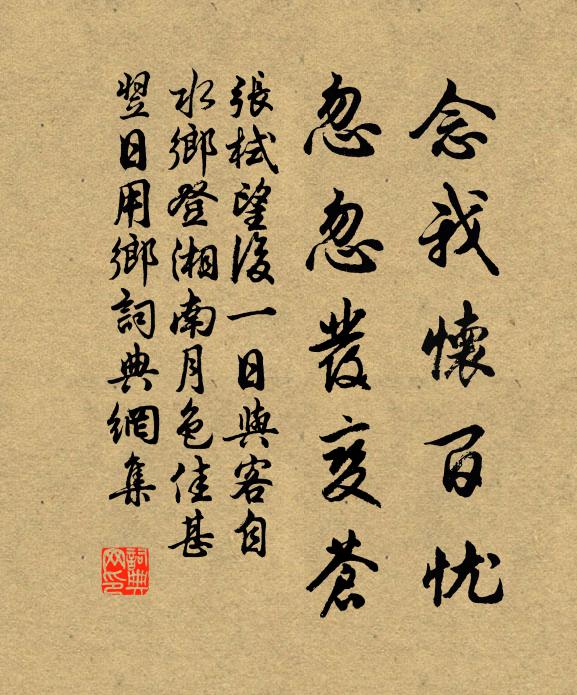 念我懷百忧
忽忽發变蒼
張栻望後一日與客自
水鄉登湘南月色佳甚
翌日用鄉詞典網集
詞典
网印